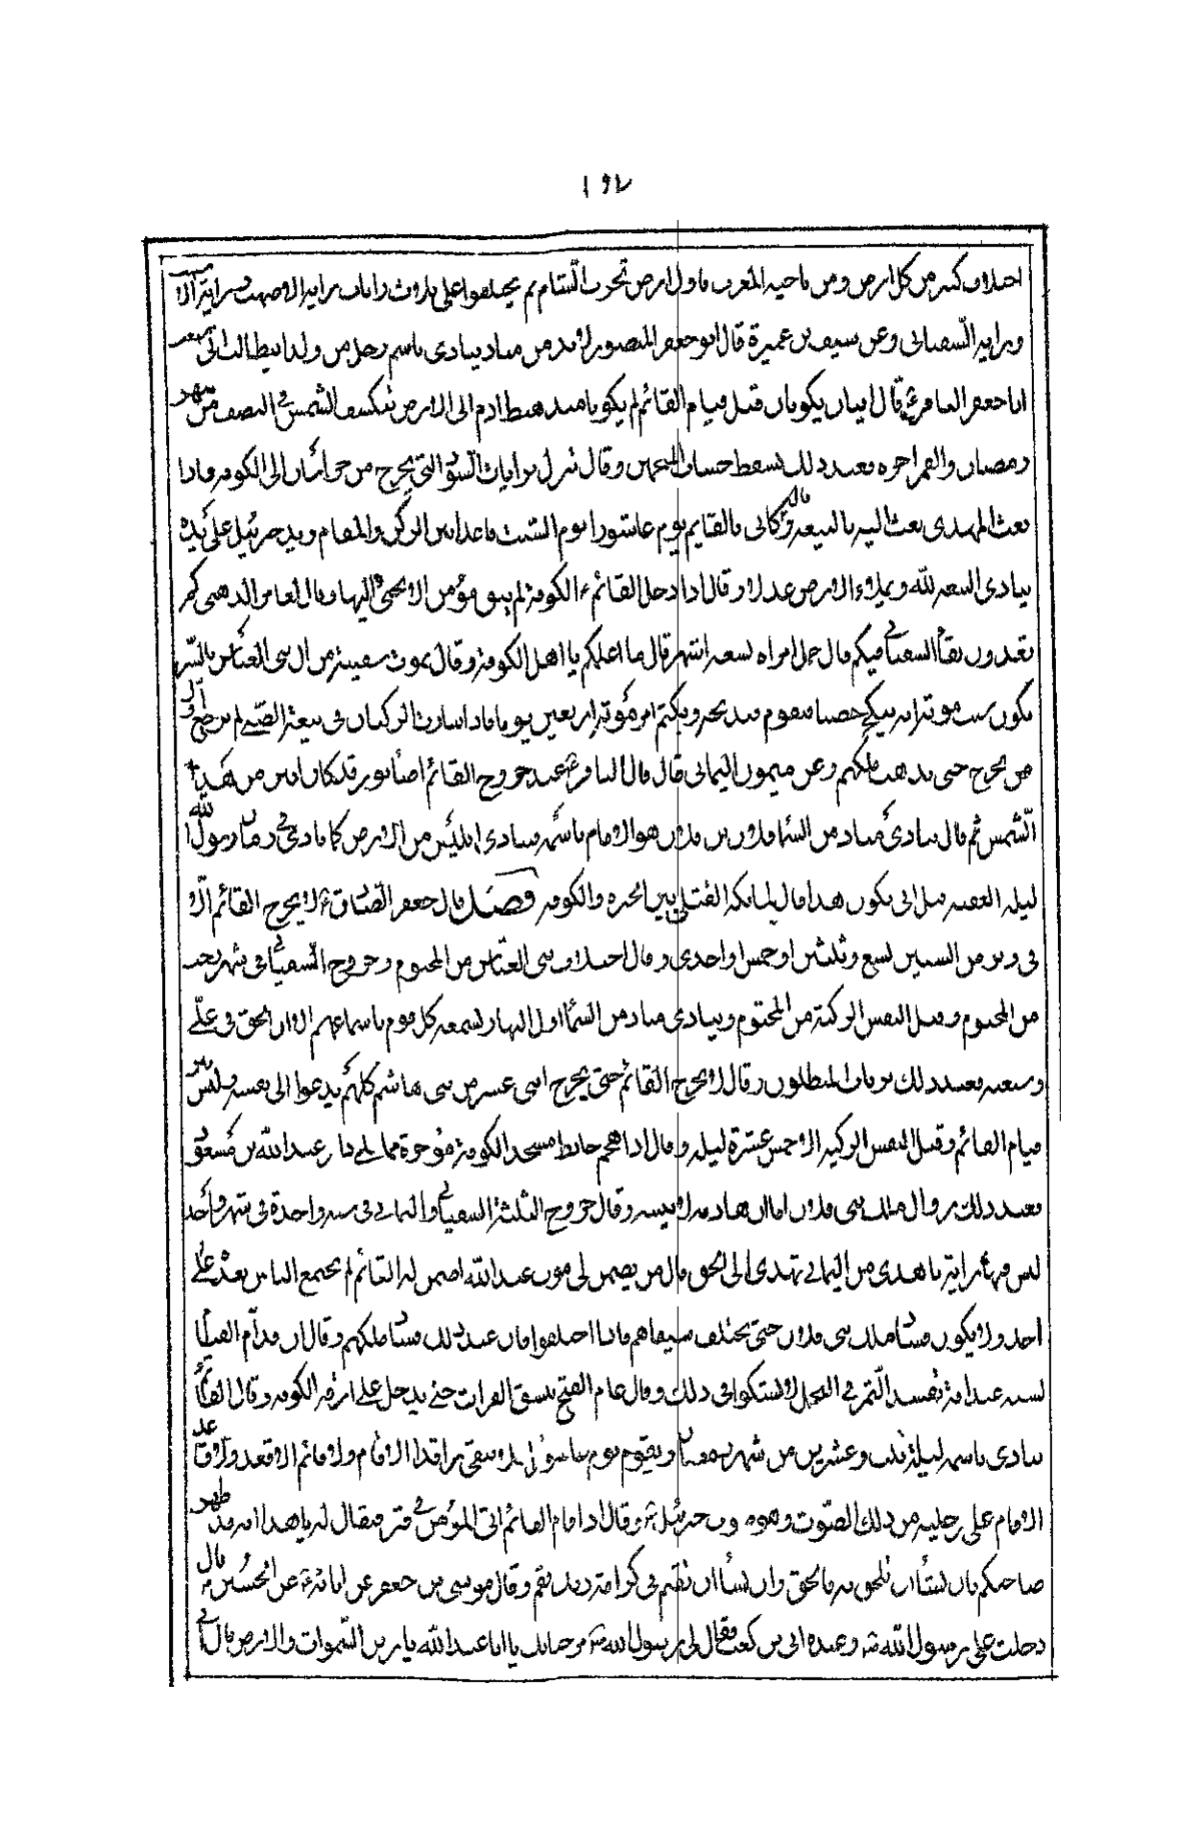 ١٩٧
اختلاف كثير من كل ارض ومن ناحية المغرب فاول ارض تخرب الشام ثم يختلفوا على ثلاث رايات راية الاصهب وراية الا
وراية السفيانى وعن سيف بن عميرة قال ابو جعفر المنصور لا بد من مناد ينادى باسم رجل من ولد ابيطالب انى سمعت
ابا جعفر الباقر ع قال ايتان يكونان قبل قيام القائم لم يكونا منذ هبط ادم الى الارض تنكسف الشمس فى النصف من شهر
رمضان والقمر اخره فعند ذلك يسقط حساب المنجمين وقال تنزل رايات السود التى تخرج من خراسان الى الكوفة فاذا
بعث المهدى بعث اليه بالبيعة وقال كانى بالقايم يوم عاشورا يوم السبت قائما بين الركن والمقام وبيد جبرئيل على يده
ينادى البيعة لله ويملاء الارض عدلا وقال اذا دخل القائم ع الكوفة لم يبق مؤمن الا يجئ اليها وقال لعمار الدهنى كم
تعدون بقاء السفيانى فيكم قال حمل امراة تسعة اشهر قال ما اعلمكم يا اهل الكوفة وقال يموت سفيه من ال بنى العباس بالسر
يكون سبب موته انه ينكح خصيا فيقوم فيذبحه ويكتم امر موته اربعين يوما فاذا سارت الركبان فى بيعة الصبى لم يرجع اول
من يخرج حتى يذهب ملكهم وعن ميمون اليمانى قال قال الباقر ع عند خروج القائم اضاء نور قد كان ابين من هذه
الشمس ثم قال ينادى مناد من السماء فلان بن فلان هو الامام باسمه وينادى ابليس من الارض كما نادى فى زمان رسول الله
ليلة العقبة قيل انى يكون هذا قال لما تكثر القتلى بين الحيرة والكوفة فصل قال جعفر الصادق ع لا يخرج القائم الا
فى وتر من السنين تسع وثلثين او خمس او احدى وقال اختلاف بنى العباس من المحتوم وخروج السفيانى فى شهر رجب
من المحتوم وقتل النفس الزكية من المحتوم وينادى مناد من السماء اول النهار يسمعه كل قوم بالسنتهم الا ان الحق فى على
وشيعته فعند ذلك يرتاب المبطلون وقال لا يخرج القائم حتى يخرج اثنى عشر من بنى هاشم كلهم يدعوا الى نفسه وليس بين
قيام القائم وقتل النفس الزكية الا خمس عشرة ليلة وقال اذا هدم حائط مسجد الكوفة مؤخرة مما يلى دار عبد الله بن مسعود
فعند ذلك زوال ملك بنى فلان اما ان هادمه لا يبنيه وقال خروج الثلثة السفيانى واليمانى فى سنة واحدة فى شهر واحد
ليس فيها راية باهدى من اليمانى تهدى الى الحق قال من يضمن لى موت عبد الله اضمن له القائم لم يجتمع الناس بعده على
احد ولا يكون فساد ملك بنى فلان حتى يختلف سيفاهم فاذا اختلفوا فان عند ذلك فساد ملكهم وقال ان قدام القيام
لسنة غيداقة تفسد التمر فى النخل لا تشكوا فى ذلك وقال عام الفتح ينشق الفرات حتى يدخل على ازقة الكوفة وقال القائم
ينادى باسمه ليلة ثلث وعشرين من شهر رمضان ويقوم يوم عاشورا فلا يبقى راقد الا قام ولا قائم الا قعد ولا قاعد
الا قام على رجليه من ذلك الصوت وهو صوت جبرئيل ع وقال اذا قام القائم اتى المؤمن فى قبره فيقال له يا هذا انه قد ظهر
صاحبكم فان تشأ ان تلحق به فالحق وان تشأ ان تقيم فى كرامة ربك فقم وقال موسى بن جعفر عن ابائه ع عن الحسين ع قال
دخلت على رسول الله ص وعنده ابى بن كعب فقال لى رسول الله ص مرحبا بك يا ابا عبد الله يا زين السموات والارض قال ابى